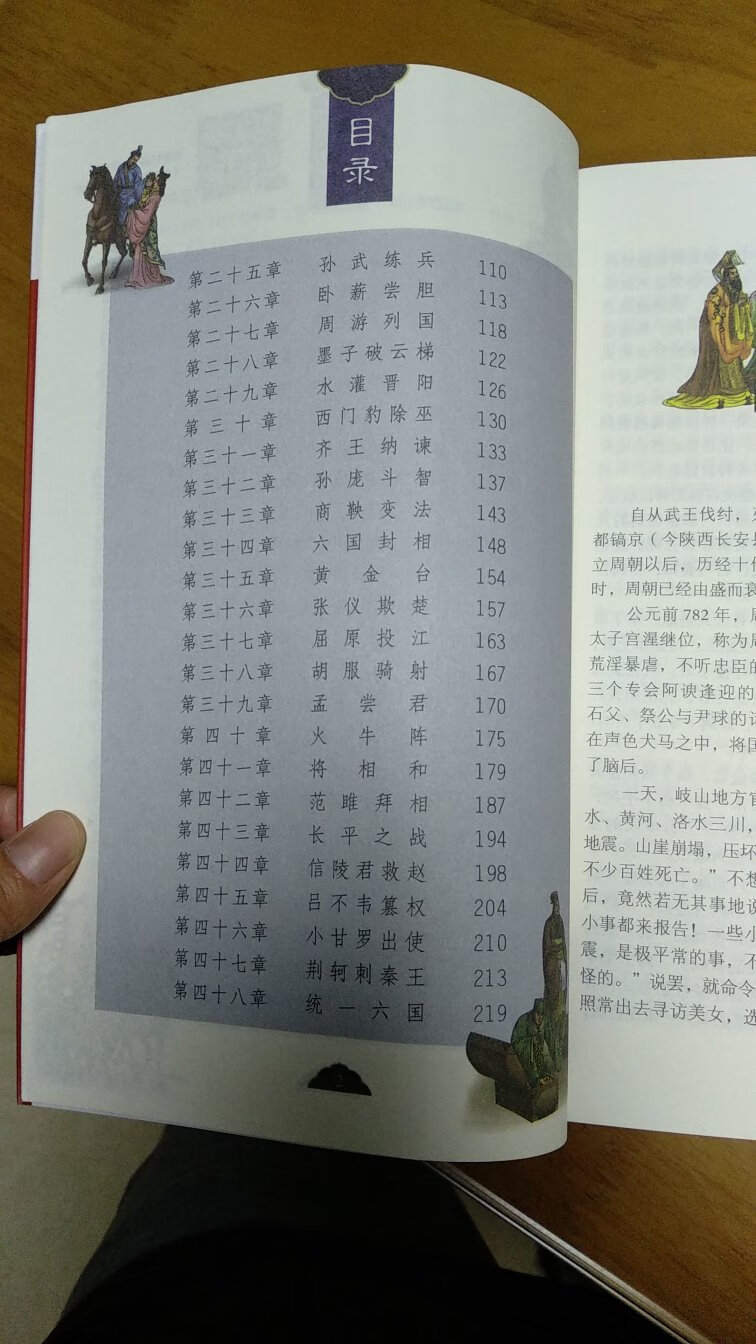 目录
第二十五章 孙武练兵 110
第二十六章 卧薪尝胆 113
第二十七章 周游列国 118
第二十八章 墨子破云梯 122
第二十九章 水灌晋阳 126
第三十章 西门豹除巫 130
第三十一章 齐王纳谏 133
第三十二章 孙庞斗智 137
第三十三章 商鞅变法 143
第三十四章 六国封相 148
第三十五章 黄金台 154
第三十六章 张仪欺楚 157
第三十七章 屈原投江 163
第三十八章 胡服骑射 167
第三十九章 孟尝君 170
第四十章 火牛阵 175
第四十一章 将相和 179
第四十二章 范雎拜相 187
第四十三章 长平之战 194
第四十四章 信陵君救赵 198
第四十五章 吕不韦篡权 204
第四十六章 小甘罗出使 210
第四十七章 荆轲刺秦王 213
第四十八章 统一六国 219
2
自从武王伐纣，
都镐京（今陕西长安县
立周朝以后，历经十
时，周朝已经由盛而衰
公元前782年，
太子宫湦继位，称为
荒淫暴虐，不听忠臣的
三个专会阿谀逢迎的
石父、祭公与尹球的
在声色犬马之中，将国
了脑后。
一天，岐山地方官
水、黄河、洛水三川，
地震。山崖崩塌，压坏
不少百姓死亡。”不想
后，竟然若无其事地说
小事都来报告！一些小
震，是极平常的事，不
怪的。”说罢，就命令
照常出去寻访美女，选